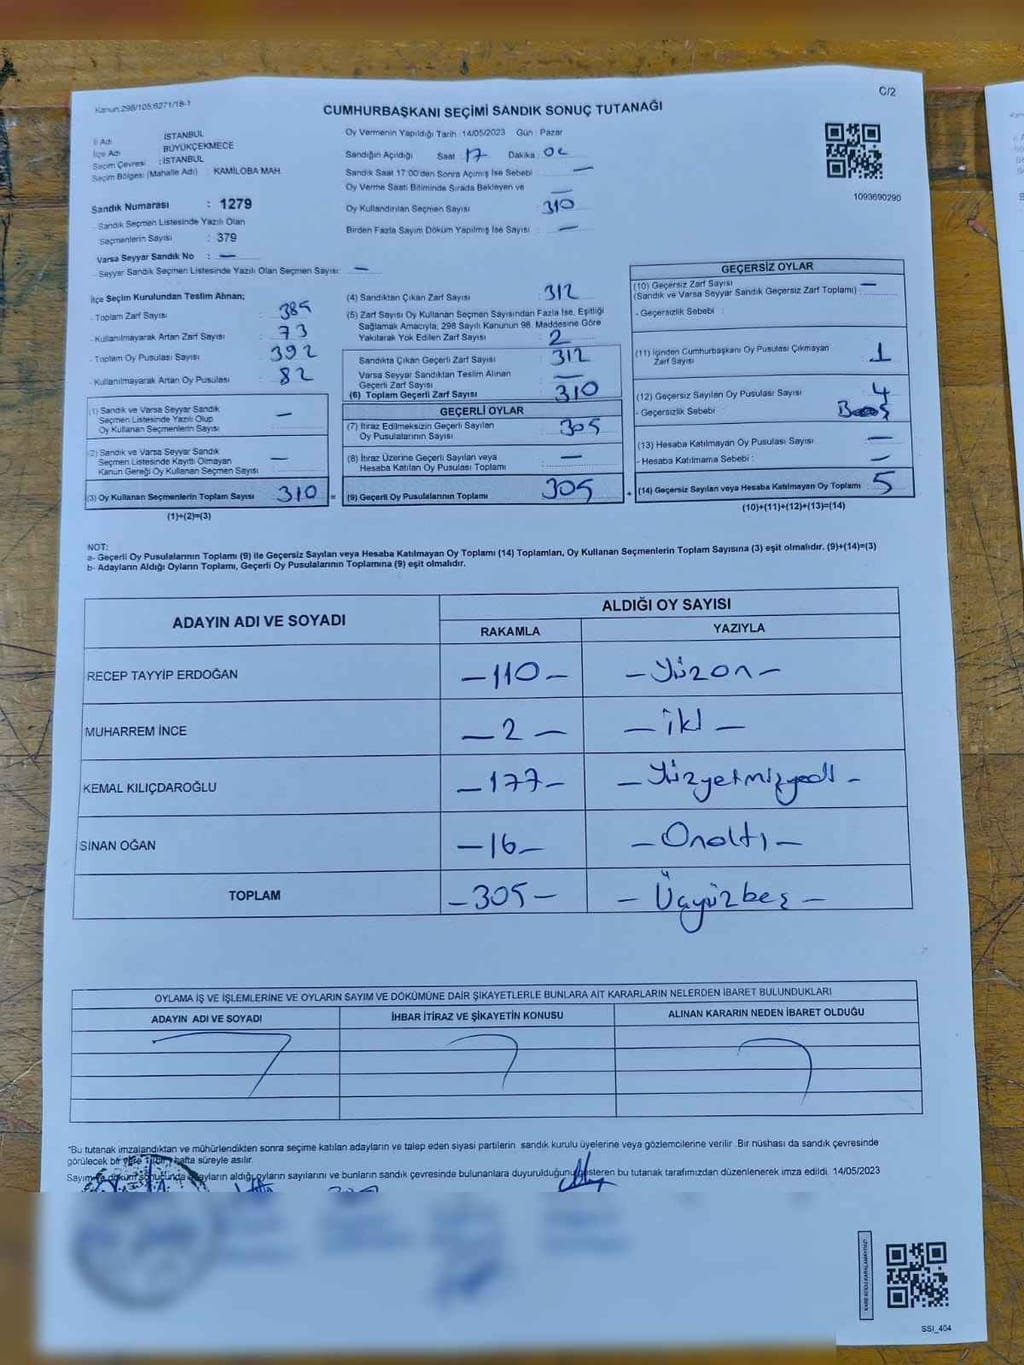 Kanun:298/105;6271/18-1
C/2
CUMHURBAŞKANI SEÇİMİ SANDIK SONUÇ TUTANAĞI
İl Adı : İSTANBUL
İlçe Adı : BÜYÜKÇEKMECE
Seçim Çevresi : İSTANBUL
Seçim Bölgesi (Mahalle Adı) : KAMİLOBA MAH.
Sandık Numarası : 1279
- Sandık Seçmen Listesinde Yazılı Olan
Seçmenlerin Sayısı : 379
Varsa Seyyar Sandık No : —
- Seyyar Sandık Seçmen Listesinde Yazılı Olan Seçmen Sayısı: —
Oy Vermenin Yapıldığı Tarih :14/05/2023 Gün : Pazar
Sandığın Açıldığı Saat 17 Dakika :
Sandık Saat 17:00'den Sonra Açılmış İse Sebebi —
Oy Verme Saati Bitiminde Sırada Bekleyen ve —
Oy Kullandırılan Seçmen Sayısı 310
Birden Fazla Sayım Döküm Yapılmış İse Sayısı : —
1093690290
İlçe Seçim Kurulundan Teslim Alınan;
- Toplam Zarf Sayısı : 385
- Kullanılmayarak Artan Zarf Sayısı : 73
- Toplam Oy Pusulası Sayısı : 392
- Kullanılmayarak Artan Oy Pusulası : 82
(1) Sandık ve Varsa Seyyar Sandık
Seçmen Listesinde Yazılı Olup
Oy Kullanan Seçmenlerin Sayısı —
(2) Sandık ve Varsa Seyyar Sandık
Seçmen Listesinde Kayıtlı Olmayan
Kanun Gereği Oy Kullanan Seçmen Sayısı —
(3) Oy Kullanan Seçmenlerin Toplam Sayısı 310 =
(1)+(2)=(3)
(4) Sandıktan Çıkan Zarf Sayısı 312
(5) Zarf Sayısı Oy Kullanan Seçmen Sayısından Fazla İse, Eşitliği
Sağlamak Amacıyla, 298 Sayılı Kanunun 98. Maddesine Göre
Yakılarak Yok Edilen Zarf Sayısı : 2
Sandıkta Çıkan Geçerli Zarf Sayısı 312
Varsa Seyyar Sandıktan Teslim Alınan
Geçerli Zarf Sayısı —
(6) Toplam Geçerli Zarf Sayısı 310
GEÇERLİ OYLAR
(7) İtiraz Edilmeksizin Geçerli Sayılan
Oy Pusulalarının Sayısı 305
(8) İtiraz Üzerine Geçerli Sayılan veya
Hesaba Katılan Oy Pusulası Toplamı —
(9) Geçerli Oy Pusulalarının Toplamı 305 +
GEÇERSİZ OYLAR
(10) Geçersiz Zarf Sayısı —
(Sandık ve Varsa Seyyar Sandık Geçersiz Zarf Toplamı)
- Geçersizlik Sebebi :
(11) İçinden Cumhurbaşkanı Oy Pusulası Çıkmayan
Zarf Sayısı 1
(12) Geçersiz Sayılan Oy Pusulası Sayısı 4
- Geçersizlik Sebebi :
(13) Hesaba Katılmayan Oy Pusulası Sayısı —
- Hesaba Katılmama Sebebi : —
(14) Geçersiz Sayılan veya Hesaba Katılmayan Oy Toplamı 5
(10)+(11)+(12)+(13)=(14)
NOT:
a- Geçerli Oy Pusulalarının Toplamı (9) ile Geçersiz Sayılan veya Hesaba Katılmayan Oy Toplamı (14) Toplamları, Oy Kullanan Seçmenlerin Toplam Sayısına (3) eşit olmalıdır. (9)+(14)=(3)
b- Adayların Aldığı Oyların Toplamı, Geçerli Oy Pusulalarının Toplamına (9) eşit olmalıdır.
ADAYIN ADI VE SOYADI ALDIĞI OY SAYISI
RAKAMLA YAZIYLA
RECEP TAYYİP ERDOĞAN —110— —Yüzon—
MUHARREM İNCE —2— —iki—
KEMAL KILIÇDAROĞLU —177— —Yüzyetmişyedi—
SİNAN OĞAN —16— —Onaltı—
TOPLAM —305— —Üçyüzbeş—
OYLAMA İŞ VE İŞLEMLERİNE VE OYLARIN SAYIM VE DÖKÜMÜNE DAİR ŞİKAYETLERLE BUNLARA AİT KARARLARIN NELERDEN İBARET BULUNDUKLARI
ADAYIN ADI VE SOYADI İHBAR İTİRAZ VE ŞİKAYETİN KONUSU ALINAN KARARIN NEDEN İBARET OLDUĞU
"Bu tutanak imzalandıktan ve mühürlendikten sonra seçime katılan adayların ve talep eden siyasi partilerin sandık kurulu üyelerine veya gözlemcilerine verilir .Bir nüshası da sandık çevresinde
görülecek bir yere 1 (bir) hafta süreyle asılır.
Sayım ve döküm sonucunda adayların aldığı oyların sayılarını ve bunların sandık çevresinde bulunanlara duyurulduğunu gösteren bu tutanak tarafımızdan düzenlenerek imza edildi. 14/05/2023
SSI_404